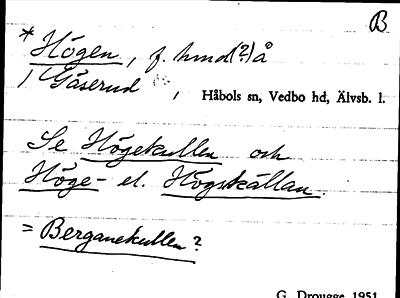 B
*Högen, f. hmd(?)å
/ Gåserud, Håbols sn, Vedbo hd, Älvsb. l.
Se Högekullen och
Höge- el. Högskällan.
= Berganekullen?
G. Drougge 1951